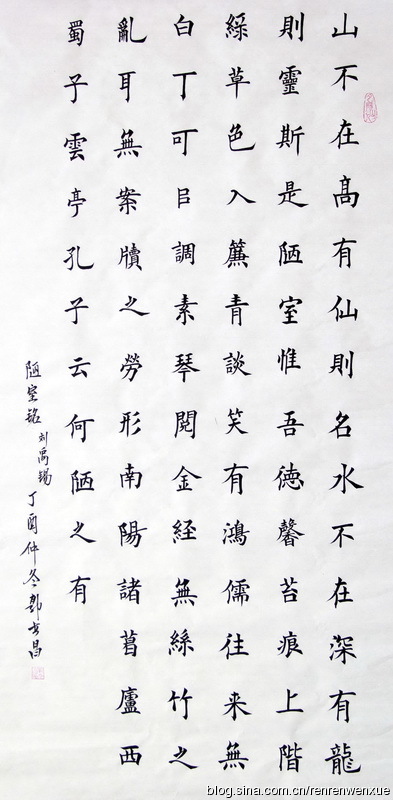 山不在高有仙則名水不在深有龍
則靈斯是陋室惟吾徳馨苔痕上階
綵草色入簾青談笑有鴻儒往来無
白丁可㠯調素琴閲金経無絲竹之
亂耳無案牘之勞形南陽諸葛廬西
蜀子雲亭孔子云何陋之有
陋室銘 刘禹锡 丁酉仲冬
blog.sina.com.cn/renrenwenxue